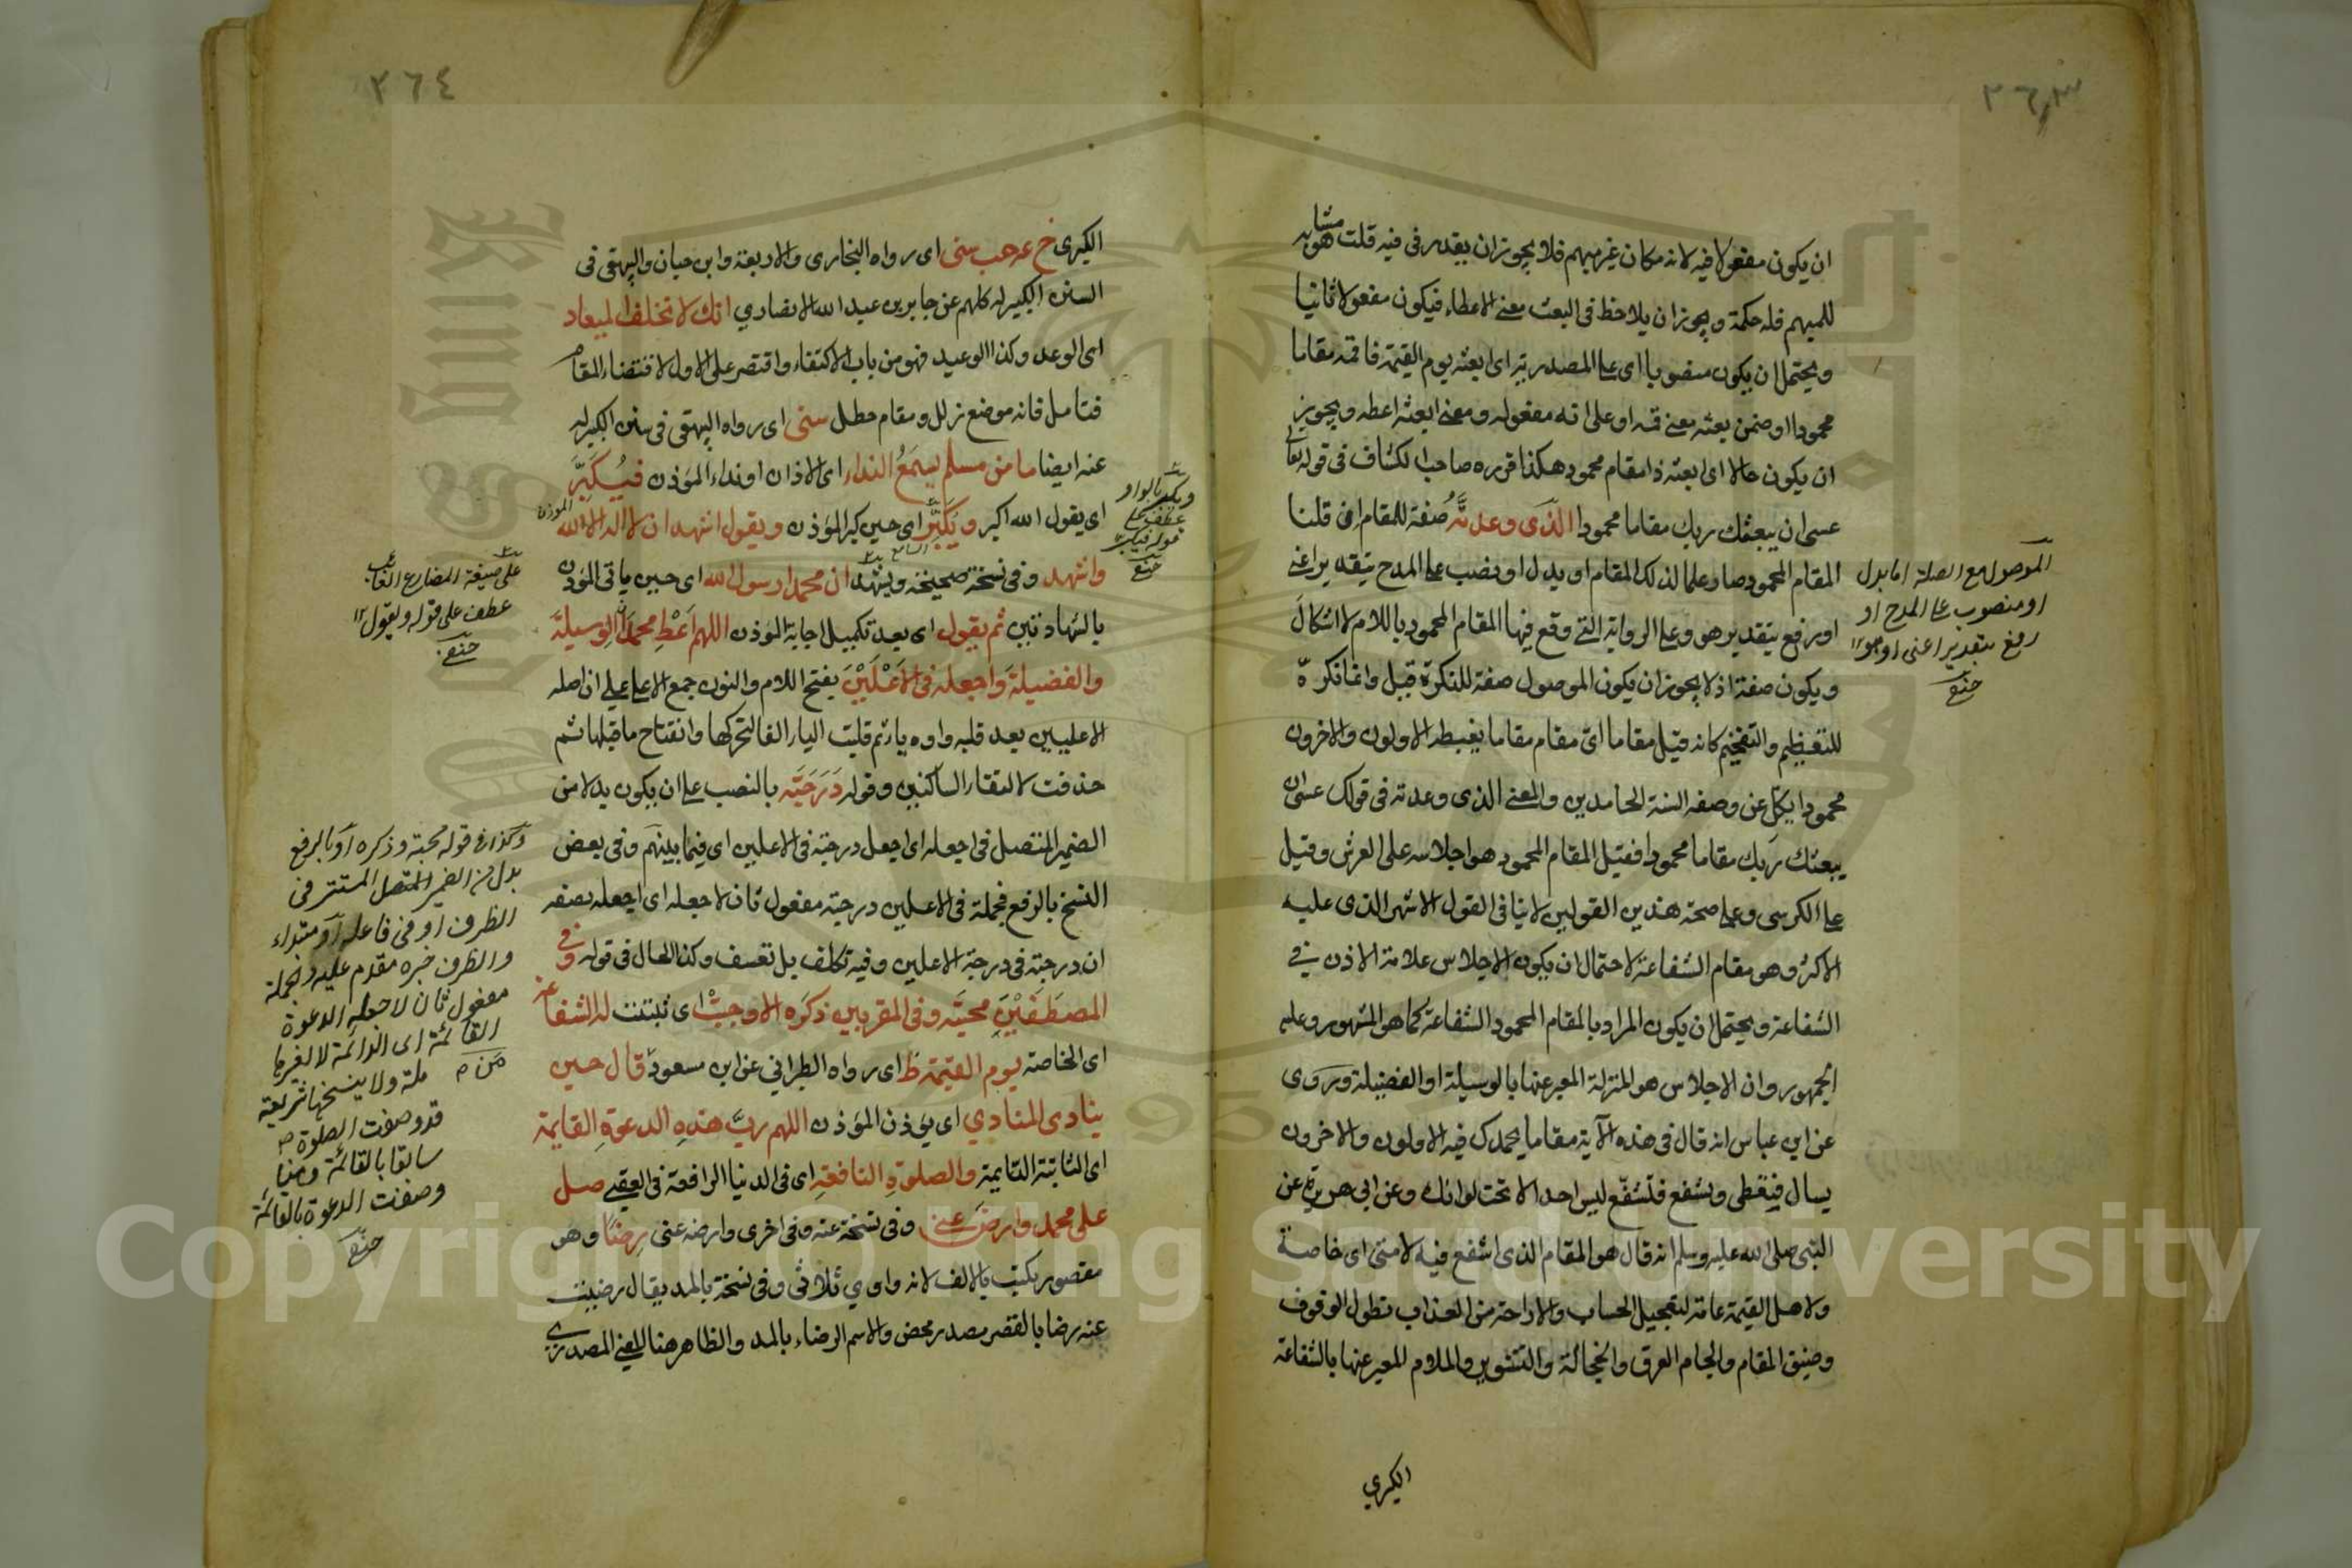 ٣٦٣
ان يكون مفعولا فيه لانه مكان غير مبهم فلا يجوز ان يقدر في فيه قلت هو مشابه
للمبهم فله حكمة ويجوز ان يلاحظ في البعث معنى الاعطاء فيكون مفعولا ثانيا
ويحتمل ان يكون منصوبا اى على المصدرية اى ابعثه يوم القيمة فاقمه مقاما
محمودا او ضمن بعثه معنى قمه او على انه مفعوله ومعنى ابعثه اعطه ويجوز
ان يكون حالا اى ابعثه ذا مقام محمود هكذا قرره صاحب الكشاف في قوله تعالى
عسى ان يبعثك ربك مقاما محمودا الذى وعدته صفة للمقام ان قلنا
المقام المحمود صار علما لذلك المقام او بدل او نصب على المدح بتقدير اعنى
او رفع بتقدير هو وعلى الرواية التي وقع فيها المقام المحمود باللام لا اشكال
ويكون صفة اذ لا يجوز ان يكون الموصول صفة للنكرة قيل وانما نكره
للتعظيم والتفخيم كانه قيل مقاما اى مقام مقاما يغبطه الاولون والاخرون
محمودا يكل عن وصفه السنة الحامدين والمعنى الذى وعدته في قولك عسى ان
يبعثك ربك مقاما محمودا فقيل المقام المحمود هو اجلاسه على العرش وقيل
على الكرسى وعلى صحة هذين القولين لا ينافى القول الاشهر الذى عليه
الاكثر وهو مقام الشفاعة لاحتمال ان يكون الاجلاس علامة الاذن في
الشفاعة ويحتمل ان يكون المراد بالمقام المحمود الشفاعة كما هو المشهور وعليه
الجمهور وان الاجلاس هو المنزلة المعبر عنها بالوسيلة او الفضيلة وروى
عن ابن عباس انه قال في هذه الآية مقاما يحمدك فيه الاولون والاخرون
يسال فيعطى ويشفع فتشفع ليس احد الا تحت لوائك وعن ابى هريرة عن
النبى صلى الله عليه وسلم انه قال هو المقام الذى اشفع فيه لامتى اى خاصة
ولاهل القيمة عامة لتعجيل الحساب والاراحة من العذاب بطول الوقوف
وضيق المقام والجام العرق والخجالة والتشوير والملام المعبر عنها بالشفاعة
الكبري
الموصول مع الصلة اما بدل
او منصوب على المدح او
رفع بتقدير اعنى او هو ١٢
٣٦٤
الكبرى خ عه حب سنى اى رواه البخارى والاربعة وابن حبان والبيهقى في
السنن الكبير له كلهم عن جابر بن عبد الله الانصاري انك لا تخلف الميعاد
اى الوعد وكذا الوعيد فهو من باب الاكتفاء واقتصر على الاول لاقتضاء المقام
فتامل فانه موضع زلل ومقام خطل سنى اى رواه البيهقى في سنن الكبير له
عنه ايضا ما من مسلم يسمع النداء اى الاذان او نداء المؤذن فيكبر
اى يقول الله اكبر ويكبر اى حين كبر المؤذن ويقول اشهد ان لا اله الا الله
واشهد وفى نسخة صحيحة ويشهد ان محمدا رسول الله اى حين ياتى المؤذن
بالشهادتين ثم يقول اى بعد تكميل اجابة المؤذن اللهم اعط محمدا الوسيلة
والفضيلة واجعله في الاعلين بفتح اللام والنون جمع الاعلى على ان اصله
الاعليين بعد قلبه واوه ياء ثم قلبت الياء الفا لتحركها وانفتاح ما قبلها ثم
حذفت لالتقاء الساكنين وقوله درجته بالنصب على ان يكون بدلا من
الضمير المتصل في اجعله اى اجعل درجته في الاعلين اى فيما بينهم وفى بعض
النسخ بالرفع فجملة في الاعلين درجته مفعول ثان لاجعله اى اجعله بصفة
ان درجته في درجة الاعلين وفيه تكلف بل تعسف وكذا الحال في قوله وفي
المصطفين محبته وفى المقربين ذكره الا وجبت اى ثبتت له الشفاعة
اى الخاصة يوم القيمة ط اى رواه الطبرانى عن ابن مسعود قال حين
ينادى المنادي اى يؤذن المؤذن اللهم رب هذه الدعوة القايمة
اى الثابتة القايمة والصلوة النافعة اى في الدنيا الرافعة في العقبى صل
على محمد وارض عنى وفى نسخة عنه وفى اخرى وارضه عنى رضا وهو
مقصور يكتب بالالف لانه واوي ثلاثى وفى نسخة بالمد يقال رضيت
عنه رضا بالقصر مصدر محض والاسم الرضاء بالمد والظاهر هنا المعنى المصدرى
ويكبر بالواو
عطف على
قوله فيكبر
على صيغة المضارع الغائب
عطف على قوله ويقول ١٢
وكذا في قوله محبته وذكره او بالرفع
بدل من الضمير المتصل المستتر في
الظرف او من فاعله او مبتداء
والظرف خبره مقدم عليه والجملة
مفعول ثان لاجعله الدعوة
القائمة اى الدائمة لا لغيرها
ملة ولا ينسخها شريعة
قد وصفت الصلوة
سابقا بالقائمة وهنا
وصفت الدعوة بالقائمة
Copyright © King Saud University